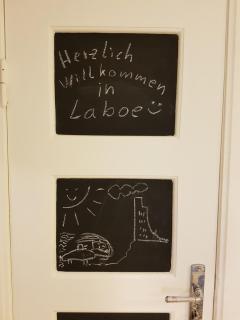 Herzlich
Willkommen
in
Laboe